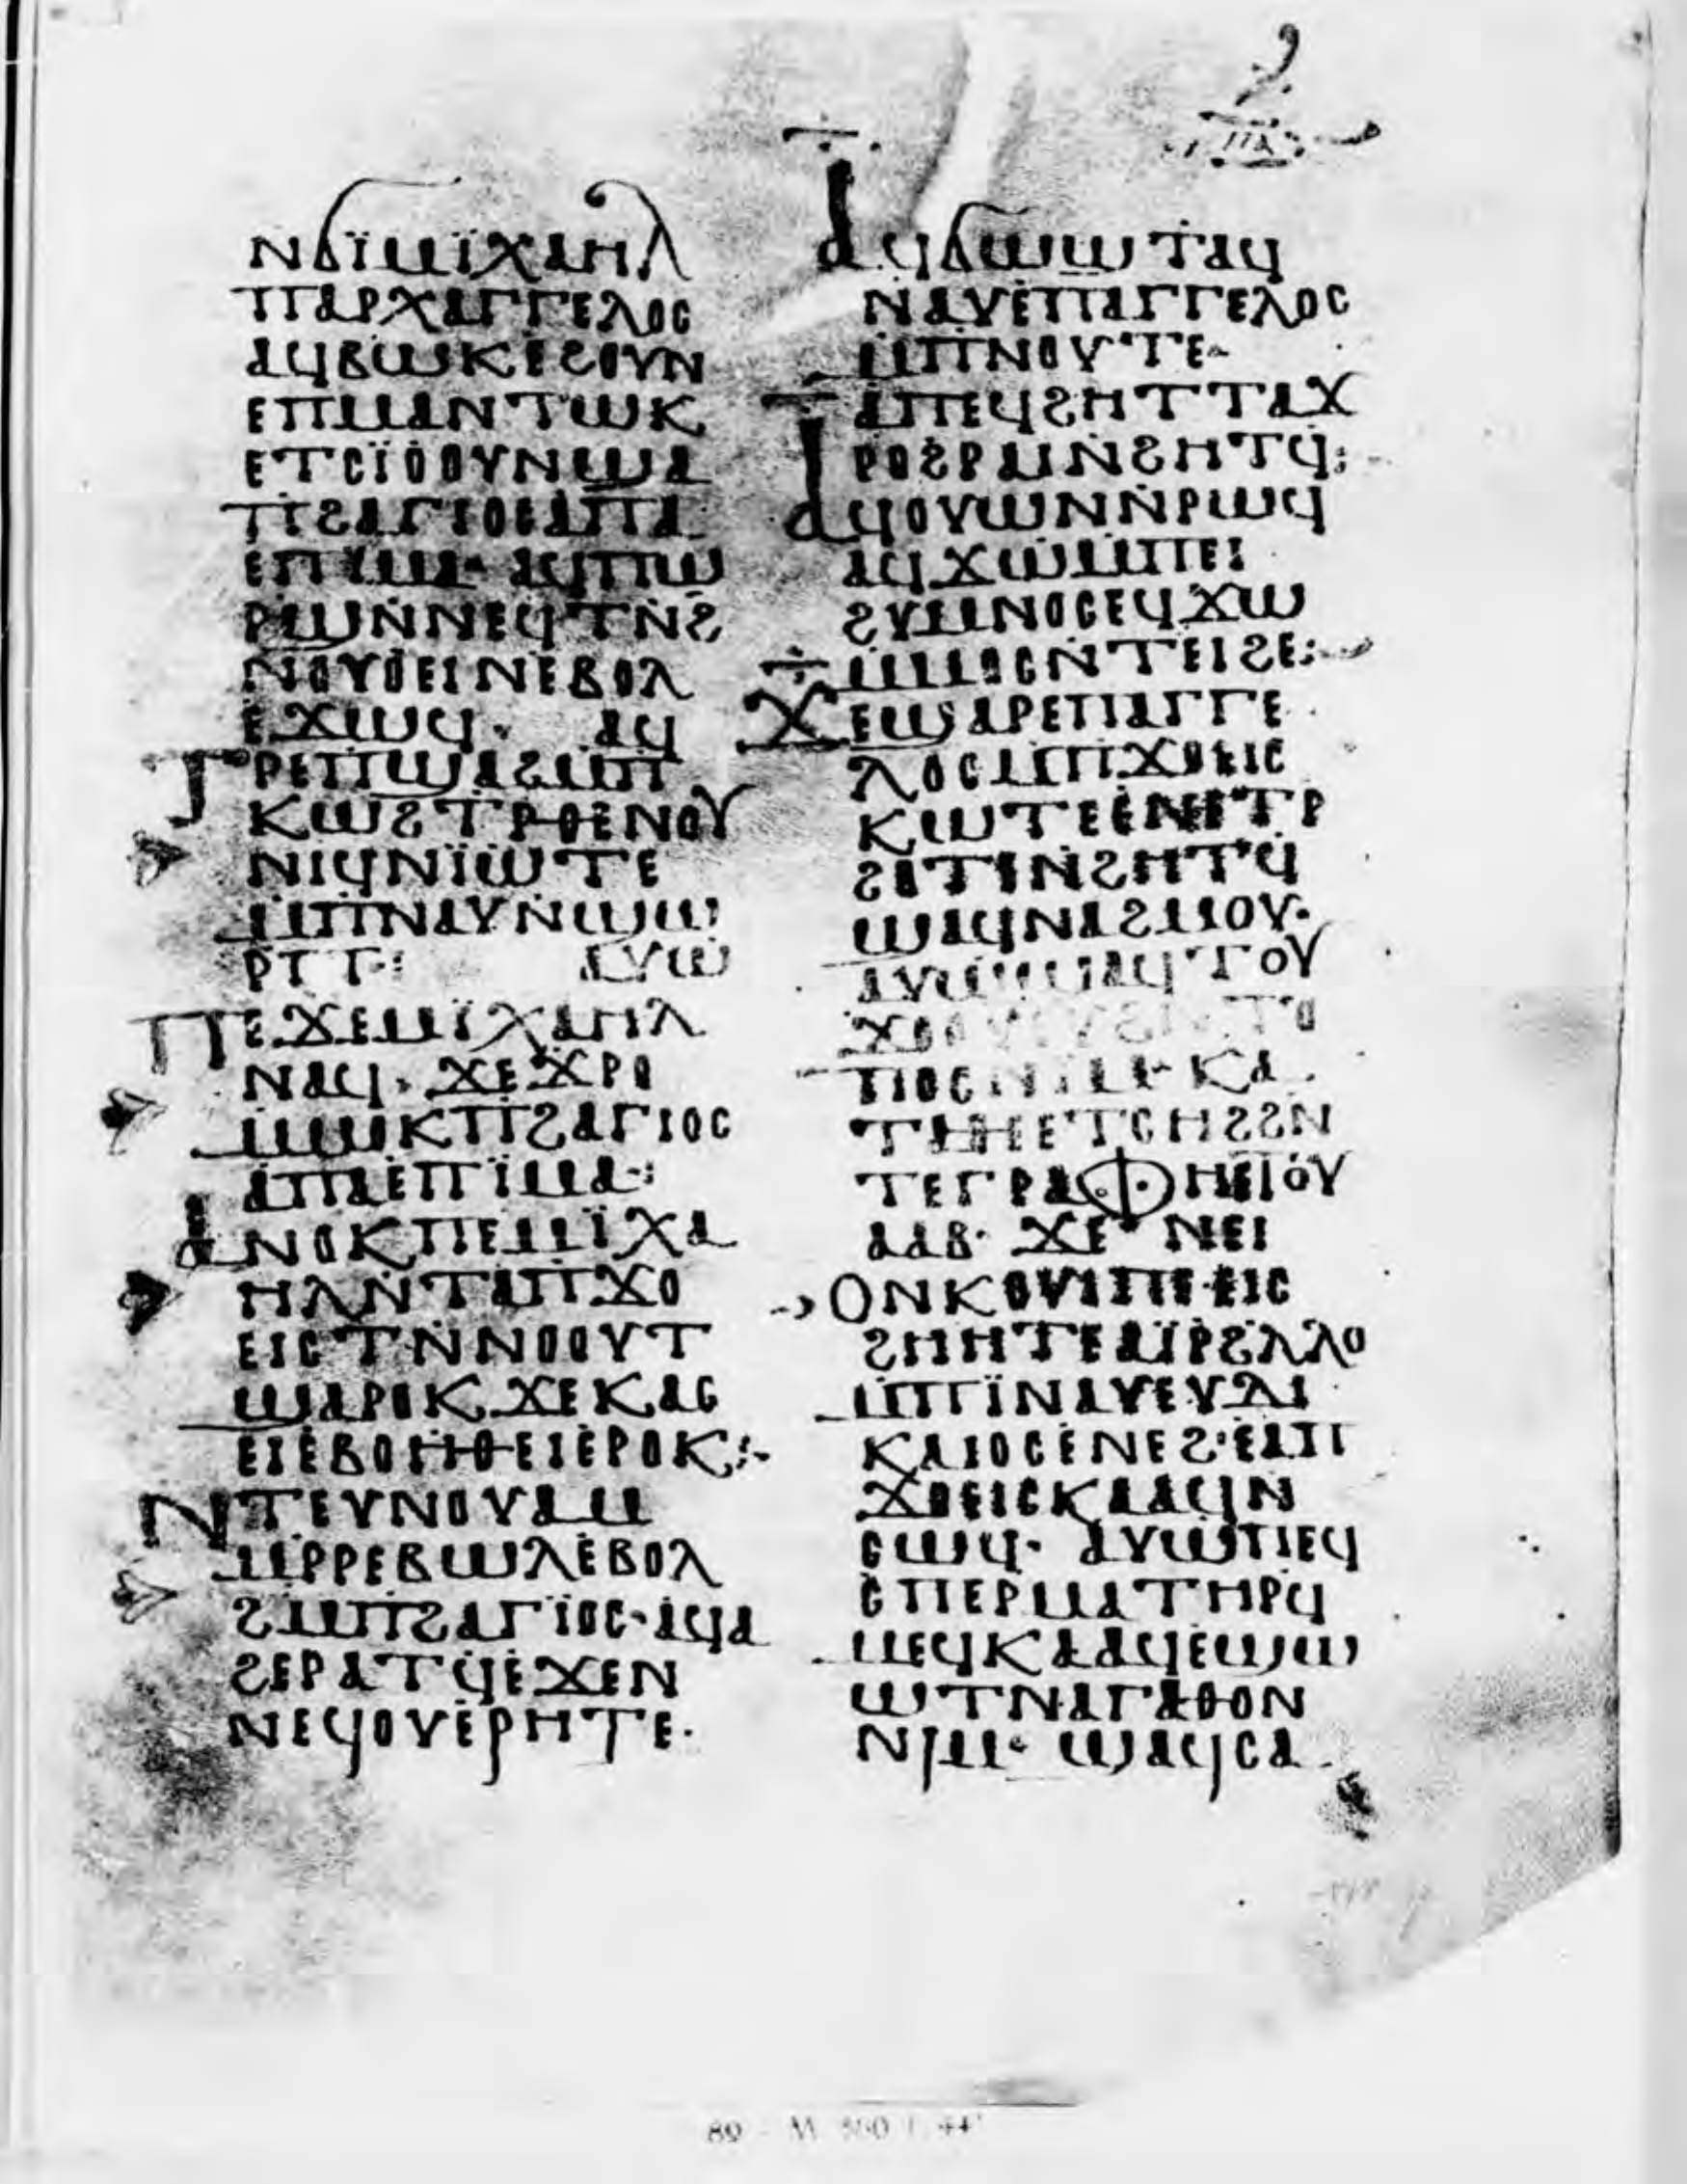 ⲛϭⲓ̈ⲙⲓ̈ⲭⲁⲏⲗ
ⲡⲁⲣⲭⲁⲅⲅⲉⲗⲟⲥ
ⲁϥⲃⲱⲕⲉϩⲟⲩⲛ
ⲉⲡⲙⲁⲛⲧⲱⲕ
ⲉⲧⲥⲓ̈ⲟⲟⲩⲛϣⲁ
ⲡϩⲁⲅⲓⲟⲥⲁⲡⲁ
ⲉⲡⲓⲙⲁ· ⲁϥⲡⲱ
ⲣϣⲛⲛⲉϥⲧⲛϩ
ⲛⲟⲩⲟⲉⲓⲛⲉⲃⲟⲗ
ⲉϫⲱϥ· ⲁϥ
ⲧⲣⲉⲡϣⲁϩⲙⲡ
ⲕⲱϩⲧⲣⲑⲉⲛⲟⲩ
ⲛⲓϥⲛⲓ̈ⲱⲧⲉ
ⲙⲡⲛⲁⲩⲛϣⲱ
ⲣⲡ: ⲁⲩⲱ
ⲡⲉϫⲉⲙⲓ̈ⲭⲁⲏⲗ
ⲛⲁϥ· ϫⲉϫⲣⲟ
ⲙⲙⲟⲕⲡϩⲁⲅⲓⲟⲥ
ⲁⲡⲁⲉⲡⲓⲙⲁ:
ⲁⲛⲟⲕⲡⲉⲙⲓ̈ⲭⲁ
ⲏⲗⲛⲧⲁⲡϫⲟ
ⲉⲓⲥⲧⲛⲛⲟⲟⲩⲧ
ϣⲁⲣⲟⲕϫⲉⲕⲁⲥ
ⲉⲓⲉⲃⲟⲏⲑⲉⲓⲉⲣⲟⲕ:-
ⲛⲧⲉⲩⲛⲟⲩⲁⲙ
ⲙⲣⲣⲉⲃⲱⲗⲉⲃⲟⲗ
ϩⲙⲡϩⲁⲅⲓ̈ⲟⲥ·ⲁϥⲁ
ϩⲉⲣⲁⲧϥⲉϫⲉⲛ
ⲛⲉϥⲟⲩⲉⲣⲏⲧⲉ·
ⲁϥϭⲱϣⲧⲁϥ
ⲛⲁⲩⲉⲡⲁⲅⲅⲉⲗⲟⲥ
ⲙⲡⲛⲟⲩⲧⲉ·
ⲁⲡⲉϥϩⲏⲧⲧⲁϫ
ⲣⲟϩⲣⲁⲓⲛϩⲏⲧϥ:
ⲁϥⲟⲩⲱⲛⲛⲣⲱϥ
ⲁϥϫⲱⲙⲡⲉⲓ
ϩⲩⲙⲛⲟⲥⲉϥϫⲱ
ⲙⲙⲟⲥⲛⲧⲉⲓϩⲉ:
ϫⲉϣⲁⲣⲉⲡⲁⲅⲅⲉ
ⲗⲟⲥⲙⲡϫⲟⲉⲓⲥ
ⲕⲱⲧⲉⲉⲛⲉⲧⲣ
ϩⲟⲧⲉⲛϩⲏⲧϥ
ϣⲁϥⲛⲁϩⲙⲟⲩ·
ⲁⲩⲱϣⲁϥⲧⲟⲩ
ⲕⲁ
ⲧⲁⲑⲉⲉⲧⲥⲏϩϩⲛ
ⲧⲉⲅⲣⲁⲫⲏⲉⲧⲟⲩ
ⲁⲁⲃ· ϫⲉ ⲛⲉⲓ
ⲟⲛⲕⲟⲩⲓⲡⲉ·ⲉⲓⲥ
ϩⲏⲏⲧⲉⲁⲓ̈ⲣϩⲗⲗⲟ
ⲙⲡⲓ̈ⲛⲁⲩⲉⲩⲇⲓ
ⲕⲁⲓⲟⲥⲉⲛⲉϩ·ⲉⲁⲡ
ϫⲟⲉⲓⲥⲕⲁⲁϥⲛ
ⲥⲱϥ· ⲁⲩⲱⲡⲉϥ
ⲥⲡⲉⲣⲙⲁⲧⲏⲣϥ
ⲙⲉϥⲕⲁⲁϥⲉϣⲱ
ⲱⲧⲛⲁⲅⲁⲑⲟⲛ
ⲛⲓⲙ· ϣⲁϥⲥⲁ